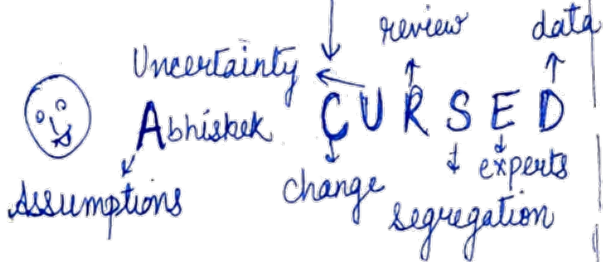 review data
Uncertainty
Abhishek CURSED
experts
Assumptions change
segregation